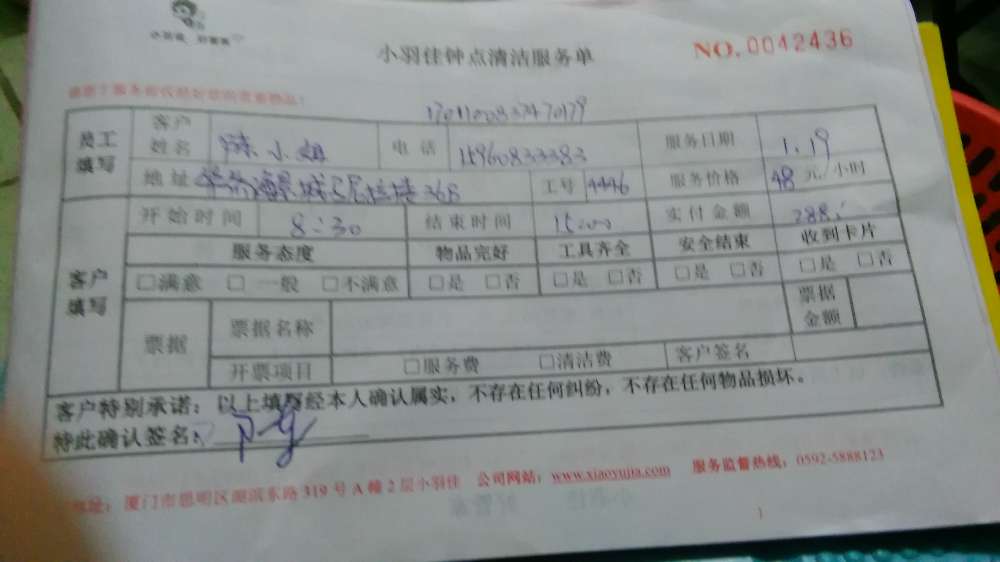 小羽佳 好管家
小羽佳钟点清洁服务单
NO.0042436
员工填写
客户姓名 陈小姐 电话 15960833383 服务日期 1.19
地址 华侨海景城 36B 工号 4446 服务价格 48元/小时
客户填写
开始时间 8:30 结束时间 15:00 实付金额 288
服务态度 物品完好 工具齐全 安全结束 收到卡片
□满意 □一般 □不满意 □是 □否 □是 □否 □是 □否 □是 □否
票据 票据名称 票据金额
开票项目 □服务费 □清洁费 客户签名
客户特别承诺：以上填写经本人确认属实，不存在任何纠纷，不存在任何物品损坏。
特此确认签名：
地址：厦门市思明区湖滨东路319号A幢2层小羽佳 公司网站：www.xiaoyujia.com 服务监督热线：0592-5888123
1